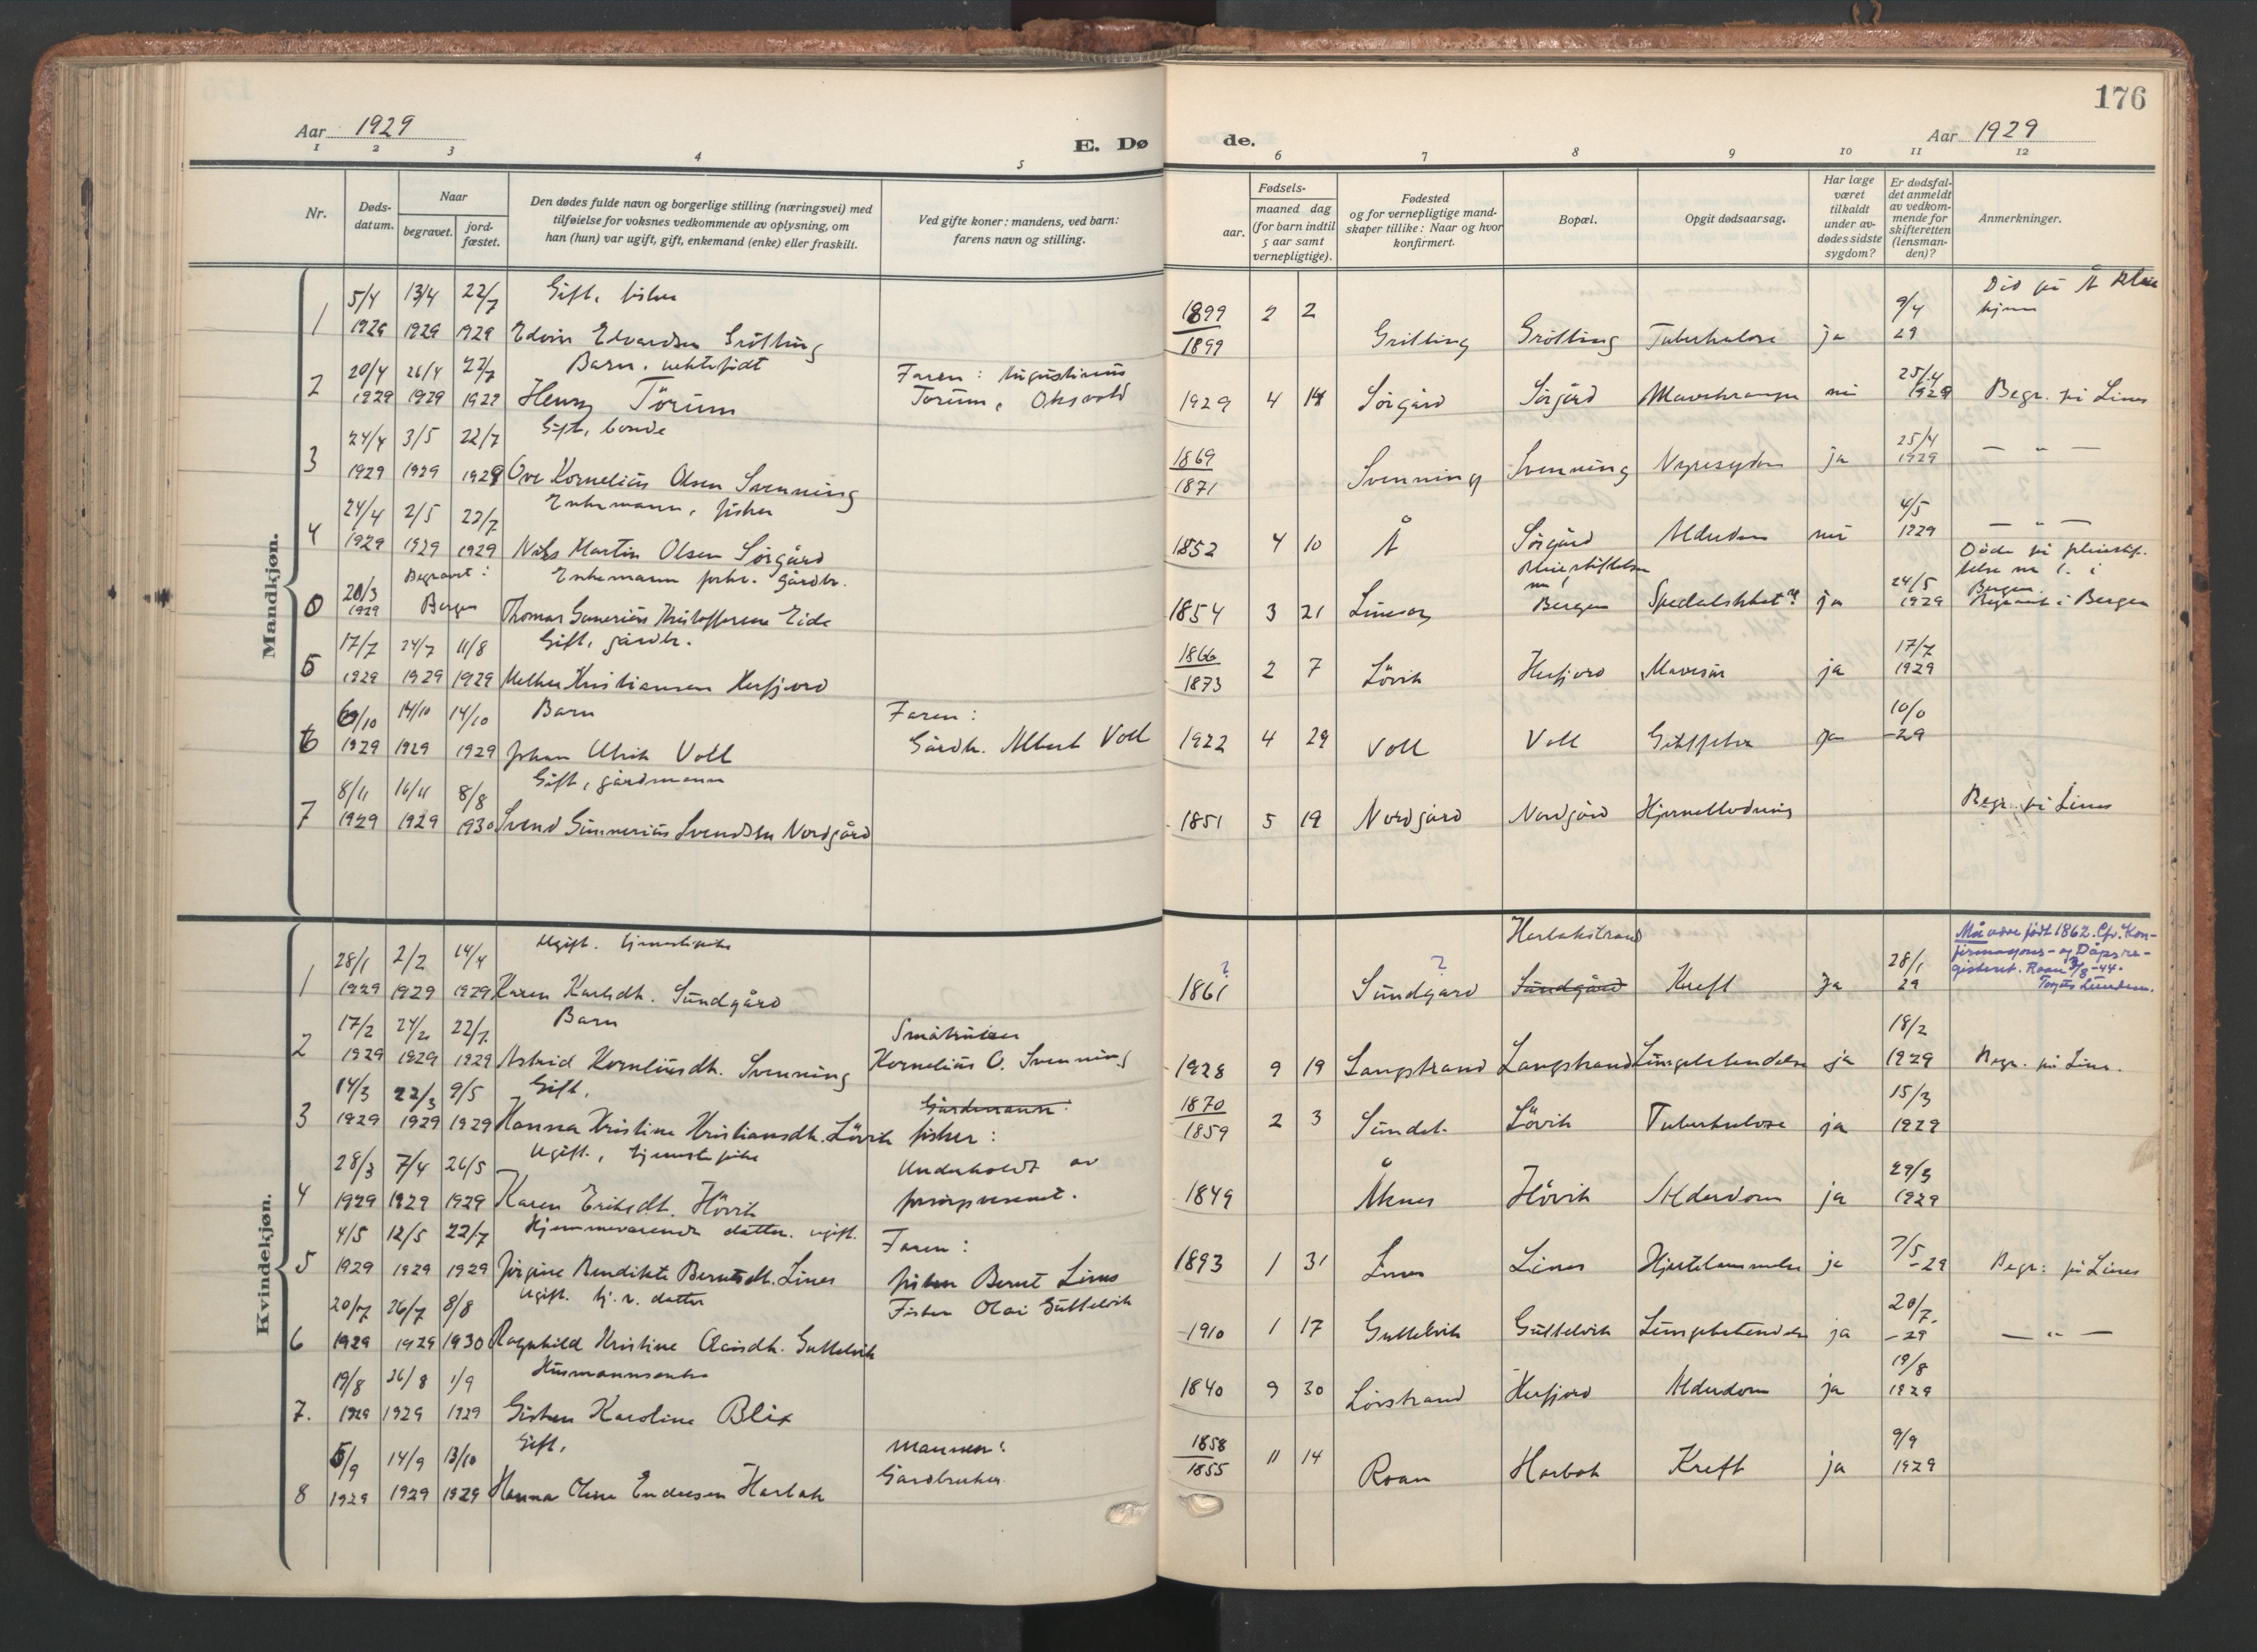 176
Aar 1929
E. Dø
de.
Aar 1929
1 2 3 4 5 6 7 8 9 10 11 12
Nr.
Døds-
datum.
Naar
begravet.
jord-
fæstet.
Den dødes fulde navn og borgerlige stilling (næringsvei) med
tilføielse for voksnes vedkommende av oplysning, om
han (hun) var ugift, gift, enkemand (enke) eller fraskilt.
Ved gifte koner: mandens, ved barn:
farens navn og stilling.
Fødsels-
aar.
maaned dag
(for barn indtil
5 aar samt
vernepligtige).
Fødested
og for vernepligtige mand-
skaper tillike: Naar og hvor
konfirmert.
Bopæl.
Opgit dødsaarsag.
Har læge
været
tilkaldt
under av-
dødes sidste
sygdom?
Er dødsfal-
det anmeldt
av vedkom-
mende for
skifteretten
(lensman-
den)?
Anmerkninger.
Mandkjøn.
5/4 13/4 22/7 Gift, fisker 1899 2 2 9/4 Död på Å
1 1929 1929 1929 Edvin Edvardsen Grötting 1899 Grötting Grötting Tuberkulose ja 29
20/4 26/4 22/7 Barn. uektefødt Faren: Augustinus 25/4
2 1929 1929 1929 Henry Törum Torum, Oksvold 1929 4 14 Sörgård Sörgård nei 1929 Begr. på Lines
24/4 3/5 22/7 Gift, bonde 1869 25/4
3 1929 1929 1929 Ove Kornelius Olsen Svenning 1871 Svenning Svenning Nyresygdom ja 1929 — " —
24/4 2/5 22/7 Enkemann, fisker 4/5
4 1929 1929 1929 Nils Martin Olsen Sörgård 1852 4 10 Å Sörgård Alderdom nei 1929 — " —
20/3 Begravet: Enkemann forhv. gårdbr. Pleiestiftelsen nr 1 24/5 Döde på pleiestif-
telse nr 1. i
Bergen.
0 1929 Bergen Thomas Gunerius Kristoffersen Eide 1854 3 21 Linesøy Bergen Spedalskhet ja 1929 Begravet i Bergen
17/7 24/7 11/8 Gift, gårdbr. 1866 17/7
5 1929 1929 1929 Melker Kristiansen Herfjord 1873 2 7 Lövik Herfjord Mavesår ja 1929
6/10 14/10 14/10 Barn Faren: 10/0
6 1929 1929 1929 Johan Ulrik Voll Gårdbr. Albert Voll 1922 4 29 Voll Voll Giktfeber ja -29
8/11 16/11 8/8 Gift, gårdmann
7 1929 1929 1930 Svend Gunnerius Svendsen Nordgård 1851 5 19 Nordgård Nordgård Hjerneblödning Begr. på Lines
Kvindekjøn.
28/1 2/2 14/4 Ugift. tjenestepike Harbakstrand 28/1 Må være født 1862. Cfr. Kon-
firmasjons- og Dåpsre-
gisteret. Roan 3/8-44.
1 1929 1929 1929 Karen Karlsdt. Sundgård 1861 ? Sundgård ? Sundgård Kreft Ja 29
17/2 24/2 22/7 Barn Småbruker 18/2
2 1929 1929 1929 Astrid Korneliusdt. Svenning Kornelius O. Svenning 1928 9 19 Langstrand Langstrand Lungebetendelse ja 1929 Begr. på Lines.
14/3 22/3 9/5 Gift, Gårdmann: 1870 15/3
3 1929 1929 1929 Hanna Kristine Kristiansdt. Lövik fisker: 1859 2 3 Sundet Lövik Tuberkulose ja 1929
28/3 7/4 26/5 Ugift, tjenestepike Underholdt av 29/3
4 1929 1929 1929 Karen Eriksdt. Hövik forsorgsvesenet. 1849 Åknes Hövik Alderdom ja 1929
4/5 12/5 22/7 Hjemmeværende datter. ugift. Faren: 7/5
5 1929 1929 1929 Jörgine Bendikte Berntsdt. Lines fisker Bernt Lines 1893 1 31 Lines Lines Hjertelammelse ja -29 Begr: på Lines
20/7 26/7 8/8 Ugift. hj. v. datter Fisker Olai Guttelvik 20/7
6 1929 1929 1930 Ragnhild Kristine Olaisdt. Guttelvik 1910 1 17 Guttelvik Guttelvik Lungebetendelse ja -29 — " —
19/8 26/8 1/9 Husmannsenke 19/8
7. 1929 1929 1929 Karoline Blix 1840 9 30 Herfjord Alderdom ja 1929
5/9 14/9 13/10 Gift, Mannen: 1858 9/9
8 1929 1929 1929 Hanna Oline Endresen Harbak Gårdbruker 1855 11 14 Roan Harbak Kreft ja 1929